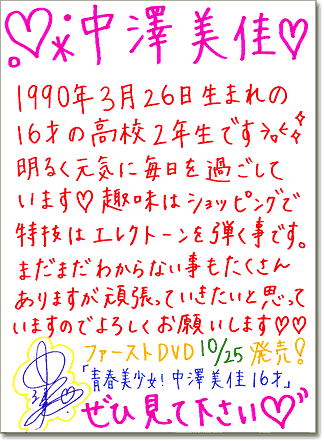 ♡*中澤美佳♡
1990年3月26日生まれの
16才の高校2年生です
明るく元気に毎日を過ごして
います♡趣味はショッピングで
特技はエレクトーンを弾く事です。
まだまだわからない事もたくさん
ありますが頑張っていきたいと思って
いますのでよろしくお願いします♡♡
ファーストDVD 10/25 発売!
「青春美少女!中澤美佳16才」
ぜひ見て下さい♡"